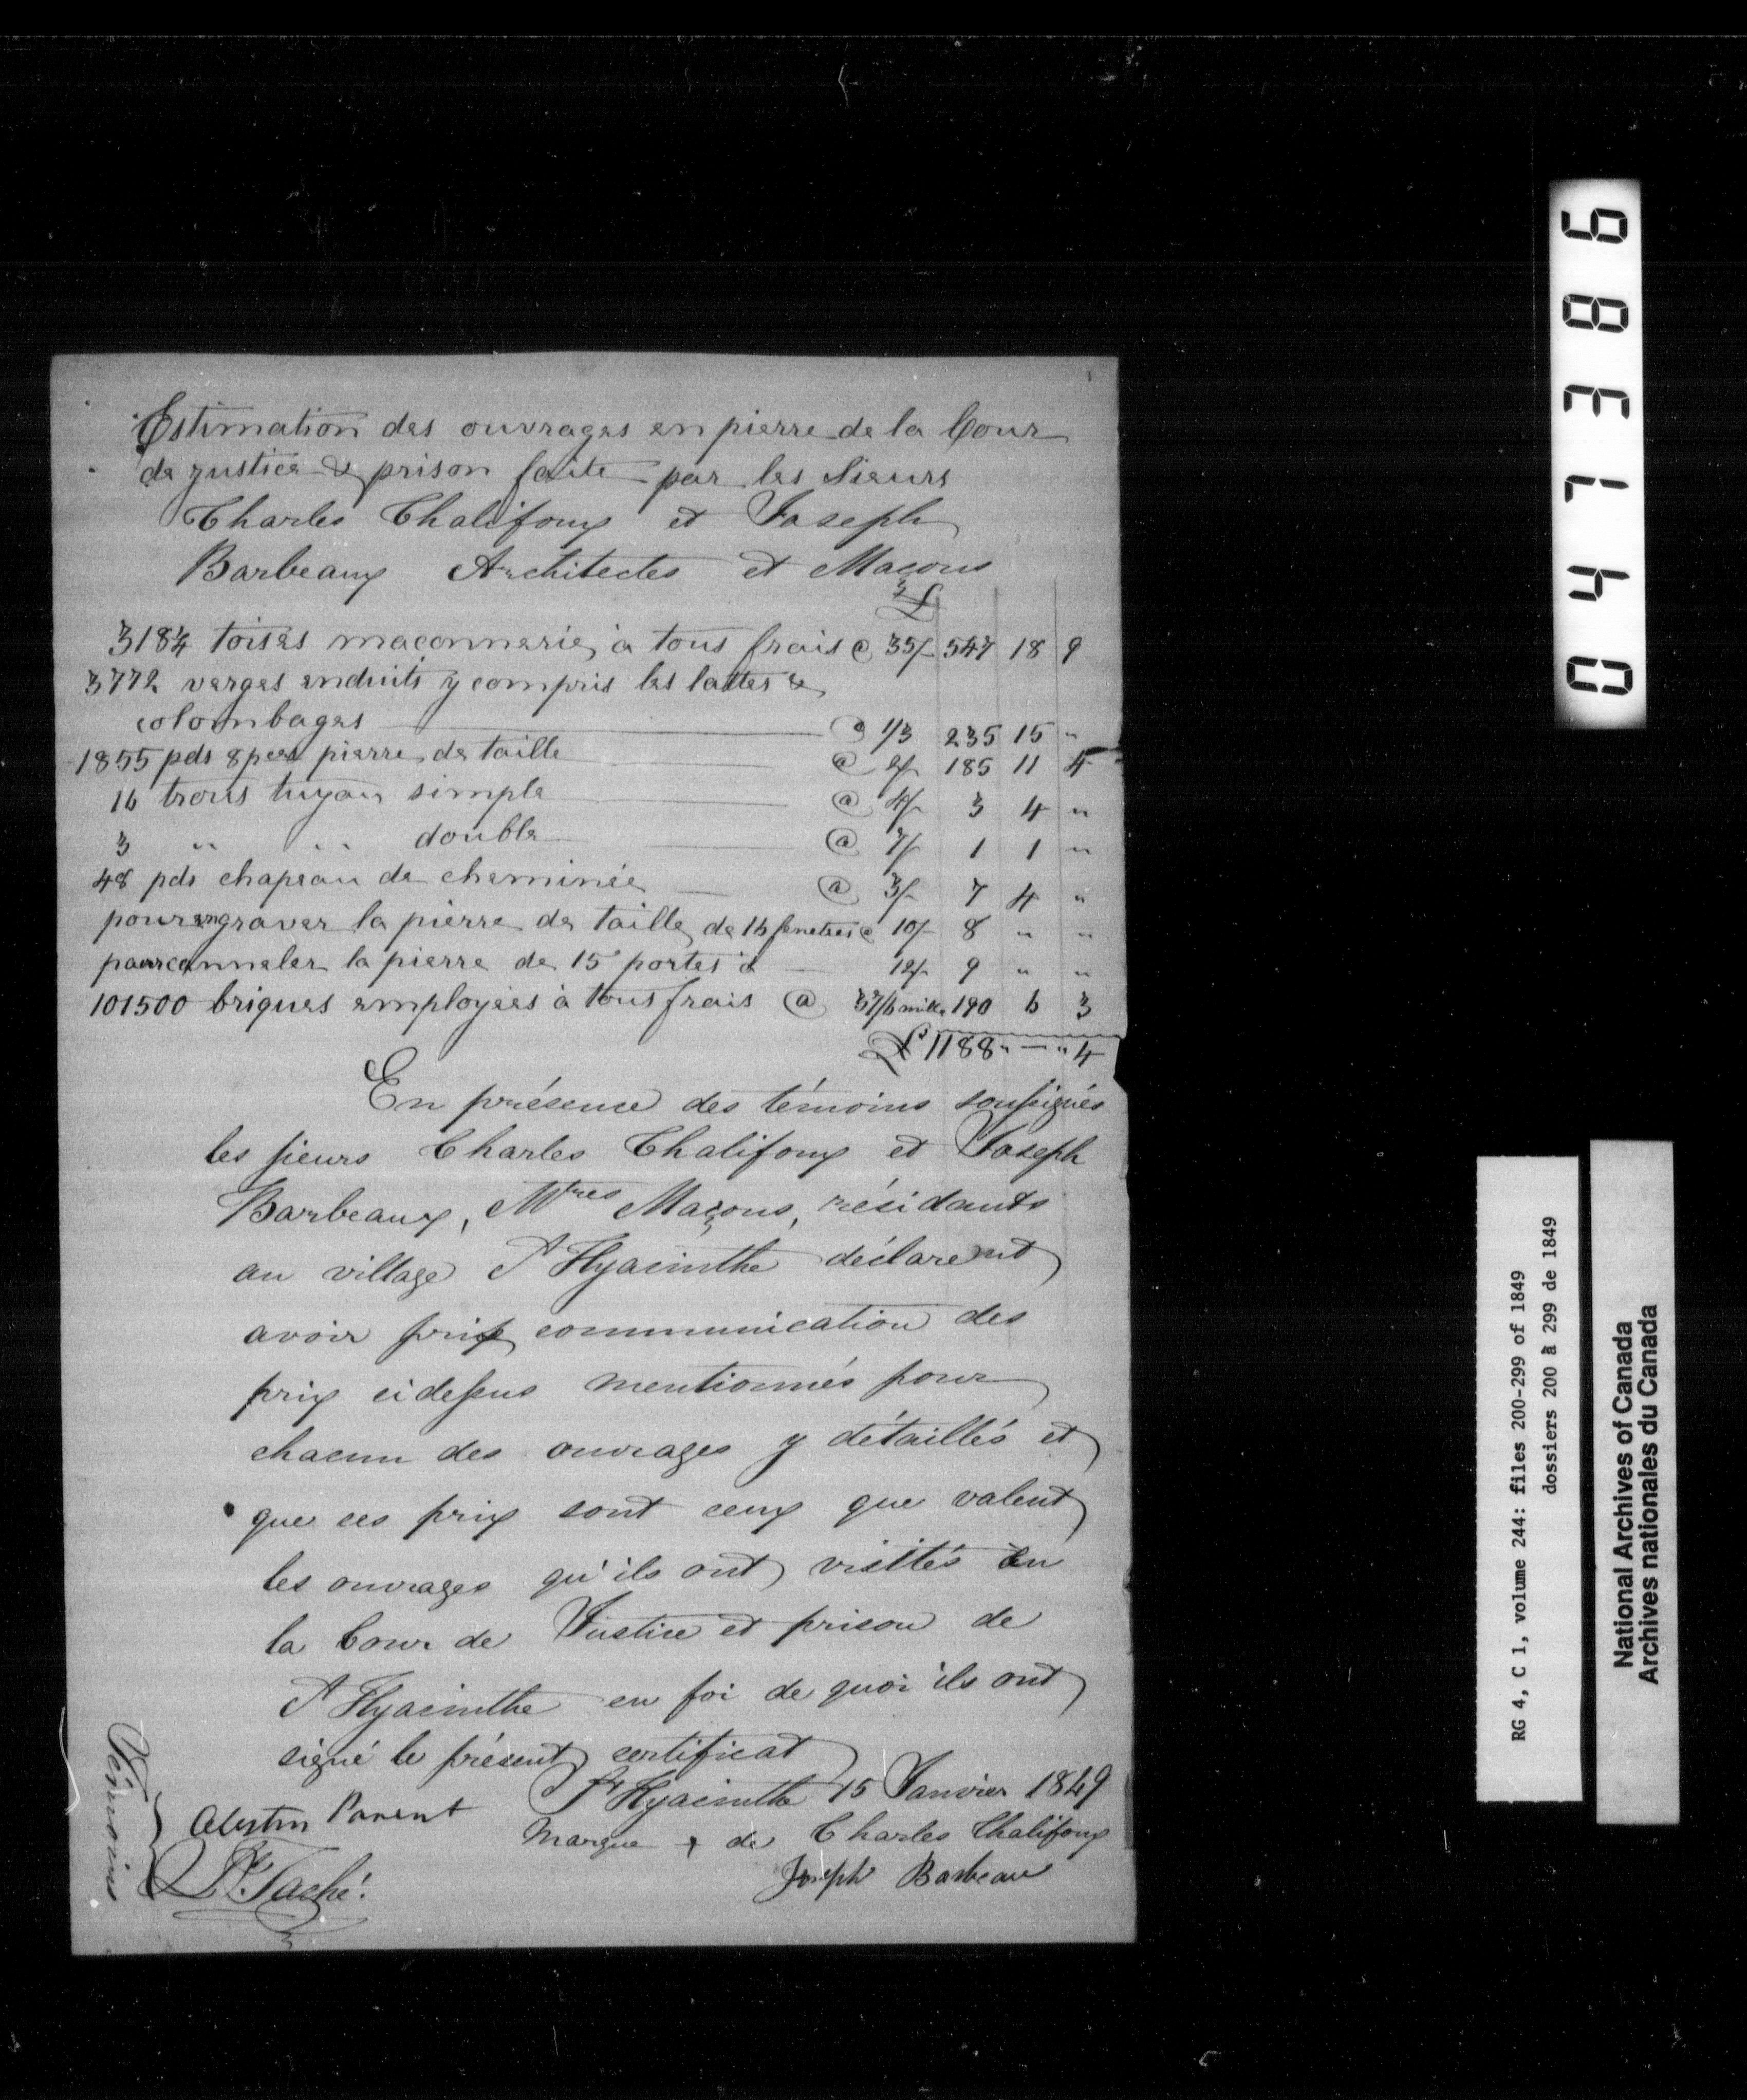 Estimation des ouvrages en pierre de la Cour
de justice & prison faite par les Sieurs
Charles Chalifoux et Joseph
Barbeaux Architectes et Maçons
£
318¼ toises maçonnerie, à tous frais @ 35/- 547 18 9
3772 verges enduits y compris les lattes &
colombages @ 1/3 235 15 "
1855 pds 8 pces pierre de taille @ 2/- 185 11 4
16 trous tuyau simple @ 4/- 3 4 "
3 " " double @ 7/- 1 1 "
48 pds chapeau de cheminée @ 3/- 7 4 "
pour engraver la pierre de taille, de 16 fenetres @ 10/- 8 " "
pour canneler la pierre de 15 portes à 12/- 9 " "
101500 briques employées à tous frais @ 37/6 mille 190 6 3
£ 1188 " — " 4
En présence des témoins soussignés
les sieurs Charles Chalifoux et Joseph
Barbeaux, Mtres Maçons, résidants
au village St Hyacinthe déclarent
avoir pris communication des
prix cidessus mentionnés pour
chacun des ouvrages y détaillés et
que ces prix sont ceux que valent
les ouvrages qu'ils ont visités en
la Cour de Justice et prison de
St Hyacinthe en foi de quoi ils ont
signé le présent certificat
St Hyacinthe 15 Janvier 1849
Marque + de Charles Chalifoux
Joseph Barbeau
Témoins
Celestin Parent
Taché
047386
RG 4, C 1, volume 244: files 200-299 of 1849
dossiers 200 à 299 de 1849
National Archives of Canada
Archives nationales du Canada